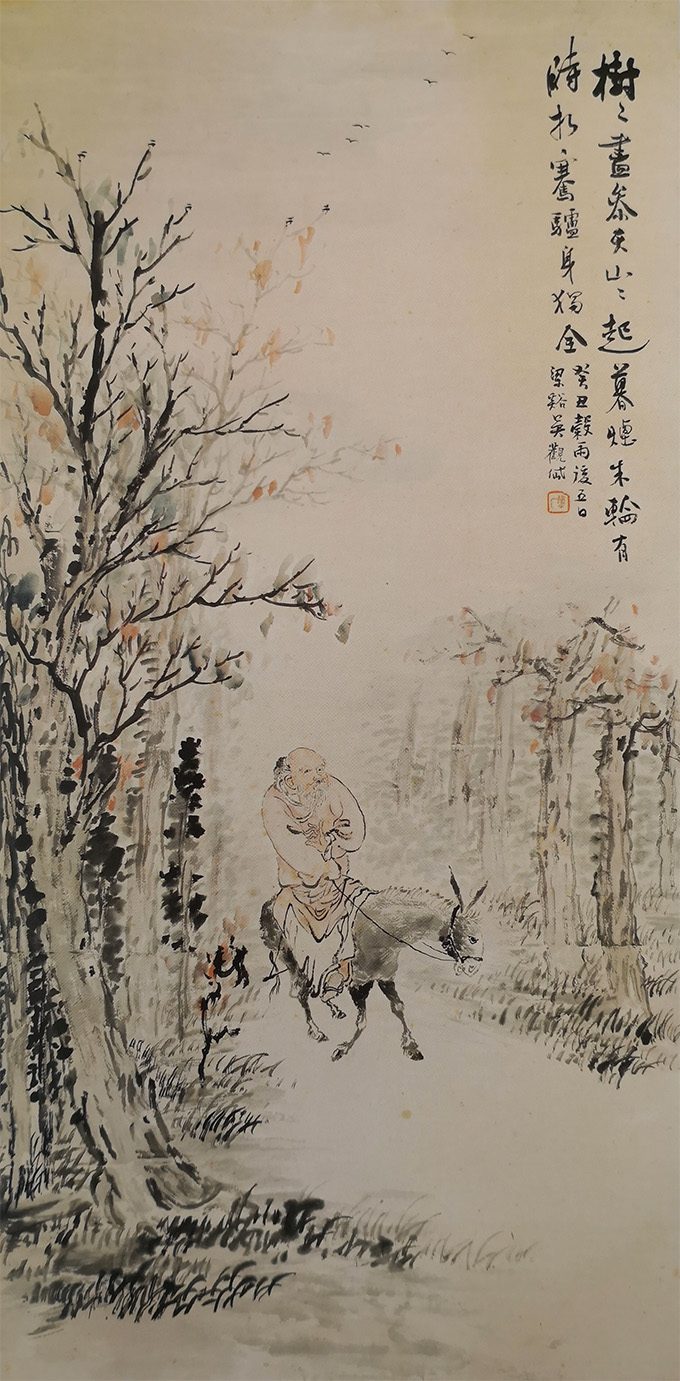 樹〻盡叅天山〻起暮煙朱輪有
時折騫驢身獨全
癸丑穀雨後五日
梁谿吳觀岱